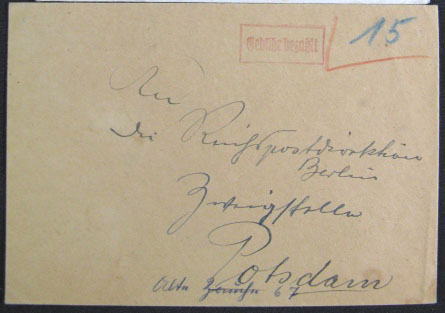 Gebühr bezahlt
15
An
die Reichspostdirektion
Berlin
Zweigstelle
Potsdam
Alte Zauche 67